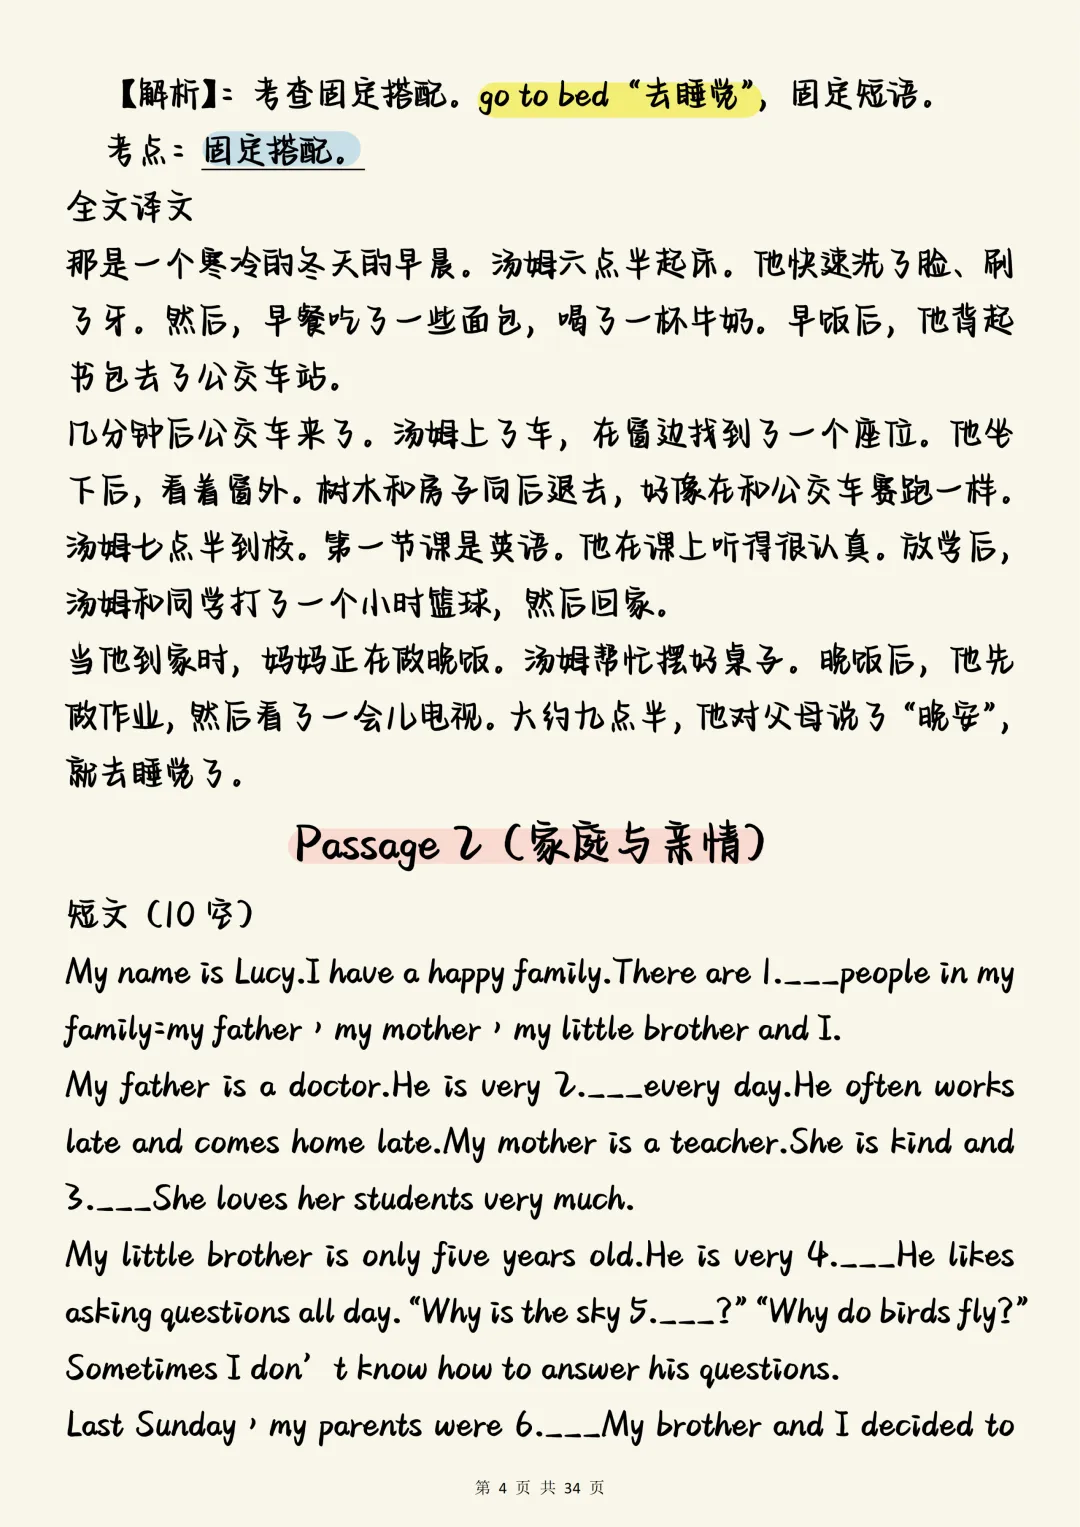 【解析】：考查固定搭配。go to bed “去睡觉”，固定短语。
考点：固定搭配。
全文译文
那是一个寒冷的冬天的早晨。汤姆六点半起床。他快速洗了脸、刷
了牙。然后，早餐吃了一些面包，喝了一杯牛奶。早饭后，他背起
书包去了公交车站。
几分钟后公交车来了。汤姆上了车，在窗边找到了一个座位。他坐
下后，看着窗外。树木和房子向后退去，好像在和公交车赛跑一样。
汤姆七点半到校。第一节课是英语。他在课上听得很认真。放学后，
汤姆和同学打了一个小时篮球，然后回家。
当他到家时，妈妈正在做晚饭。汤姆帮忙摆好桌子。晚饭后，他先
做作业，然后看了一会儿电视。大约九点半，他对父母说了“晚安”，
就去睡觉了。
Passage 2（家庭与亲情）
短文（10 空）
My name is Lucy.I have a happy family.There are 1.___people in my
family:my father，my mother，my little brother and I.
My father is a doctor.He is very 2.___every day.He often works
late and comes home late.My mother is a teacher.She is kind and
3.___She loves her students very much.
My little brother is only five years old.He is very 4.___He likes
asking questions all day. “Why is the sky 5.___?” “Why do birds fly?”
Sometimes I don’t know how to answer his questions.
Last Sunday，my parents were 6.___My brother and I decided to
第 4 页 共 34 页